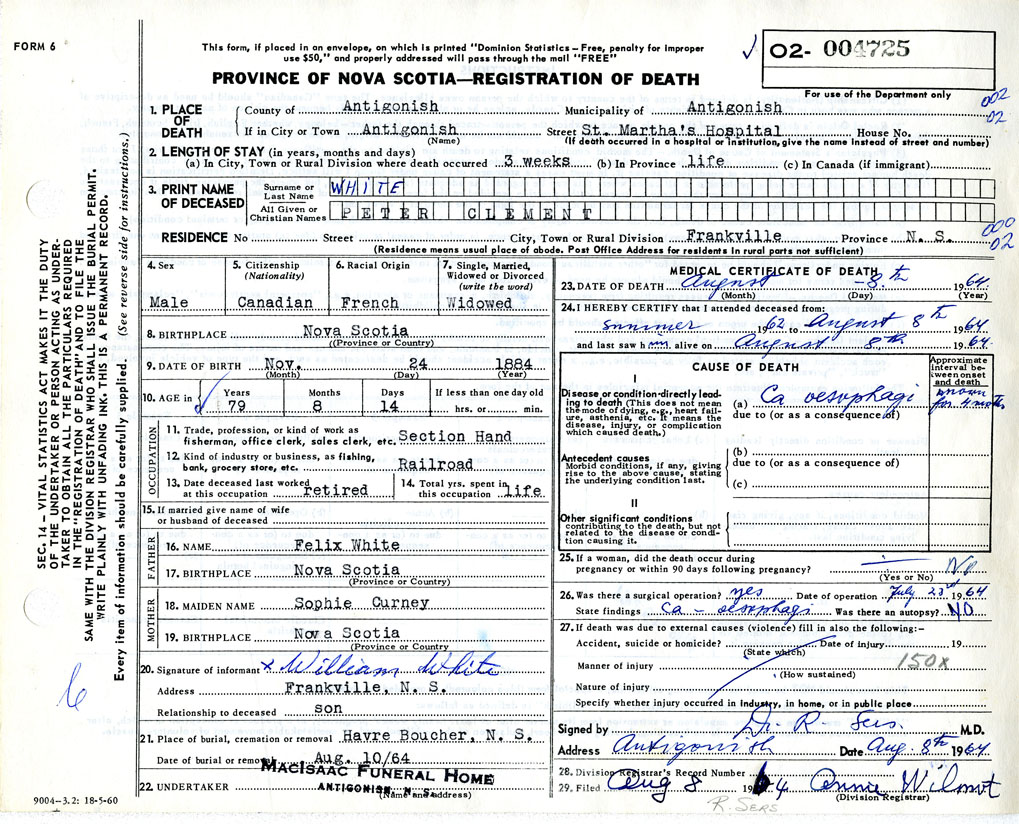 FORM 6
This form, if placed in an envelope, on which is printed "Dominion Statistics – Free, penalty for improper
use $50," and properly addressed will pass through the mail "FREE"
02- 004725
PROVINCE OF NOVA SCOTIA—REGISTRATION OF DEATH
For use of the Department only
002
02
1. PLACE OF DEATH
County of Antigonish Municipality of Antigonish
If in City or Town Antigonish Street St. Martha's Hospital House No.
(Name) (If death occurred in a hospital or institution, give the name instead of street and number)
2. LENGTH OF STAY (in years, months and days)
(a) In City, Town or Rural Division where death occurred 3 weeks (b) In Province life (c) In Canada (if immigrant)
3. PRINT NAME OF DECEASED
Surname or Last Name WHITE
All Given or Christian Names PETER CLEMENT
000
02
RESIDENCE No Street City, Town or Rural Division Frankville Province N. S.
(Residence means usual place of abode. Post Office Address for residents in rural parts not sufficient)
4. Sex
Male
5. Citizenship
(Nationality)
Canadian
6. Racial Origin
French
7. Single, Married,
Widowed or Divorced
(write the word)
Widowed
8. BIRTHPLACE Nova Scotia
(Province or Country)
9. DATE OF BIRTH Nov. 24 1884
(Month) (Day) (Year)
10. AGE in
Years Months Days If less than one day old
79 8 14 hrs. or min.
OCCUPATION
11. Trade, profession, or kind of work as
fisherman, office clerk, sales clerk, etc. Section Hand
12. Kind of industry or business, as fishing,
bank, grocery store, etc. Railroad
13. Date deceased last worked
at this occupation retired
14. Total yrs. spent in
this occupation life
15. If married give name of wife
or husband of deceased
FATHER
16. NAME Felix White
17. BIRTHPLACE Nova Scotia
(Province or Country)
MOTHER
18. MAIDEN NAME Sophie Curney
19. BIRTHPLACE Nova Scotia
(Province or Country
20. Signature of informant x William White
Address Frankville, N. S.
Relationship to deceased son
21. Place of burial, cremation or removal Havre Boucher, N. S.
Date of burial or removal Aug. 10/64
22. UNDERTAKER MACISAAC FUNERAL HOME
ANTIGONISH, N. S.
(Name and address)
MEDICAL CERTIFICATE OF DEATH
23. DATE OF DEATH August - 8th 1964
(Month) (Day) (Year)
24. I HEREBY CERTIFY that I attended deceased from:
summer 1962 to August 8th 1964
and last saw him alive on August 8th 1964
CAUSE OF DEATH
Approximate
interval be-
tween onset
and death
I
Disease or condition directly lead-
ing to death (This does not mean
the mode of dying, e.g., heart fail-
ure, asthenia, etc. It means the
disease, injury, or complication
which caused death.)
(a) Ca oesophagi
known
for 4 months
due to (or as a consequence of)
Antecedent causes
Morbid conditions, if any, giving
rise to the above cause, stating
the underlying condition last.
(b)
due to (or as a consequence of)
(c)
II
Other significant conditions
contributing to the death, but not
related to the disease or condi-
tion causing it.
25. If a woman, did the death occur during
pregnancy or within 90 days following pregnancy? No
(Yes or No)
26. Was there a surgical operation? yes Date of operation July 23rd 1964
State findings Ca - oesophagi Was there an autopsy? NO
27. If death was due to external causes (violence) fill in also the following:–
Accident, suicide or homicide? Date of injury 19
(State which)
150x
Manner of injury
(How sustained)
Nature of injury
Specify whether injury occurred in industry, in home, or in public place
Signed by Dr. R. Sers. M.D.
Address Antigonish Date Aug. 8th 1964
28. Division Registrar's Record Number
29. Filed Aug 8 1964 Annie Wilmot
(Division Registrar)
R. SERS
SEC. 14 – VITAL STATISTICS ACT MAKES IT THE DUTY
OF THE UNDERTAKER OR PERSON ACTING AS UNDER-
TAKER TO OBTAIN ALL THE PARTICULARS REQUIRED
IN THE "REGISTRATION OF DEATH" AND TO FILE THE
SAME WITH THE DIVISION REGISTRAR WHO SHALL ISSUE THE BURIAL PERMIT.
WRITE PLAINLY WITH UNFADING INK. THIS IS A PERMANENT RECORD.
Every item of information should be carefully supplied. (See reverse side for instructions.)
6
9004-3.2: 18-5-60